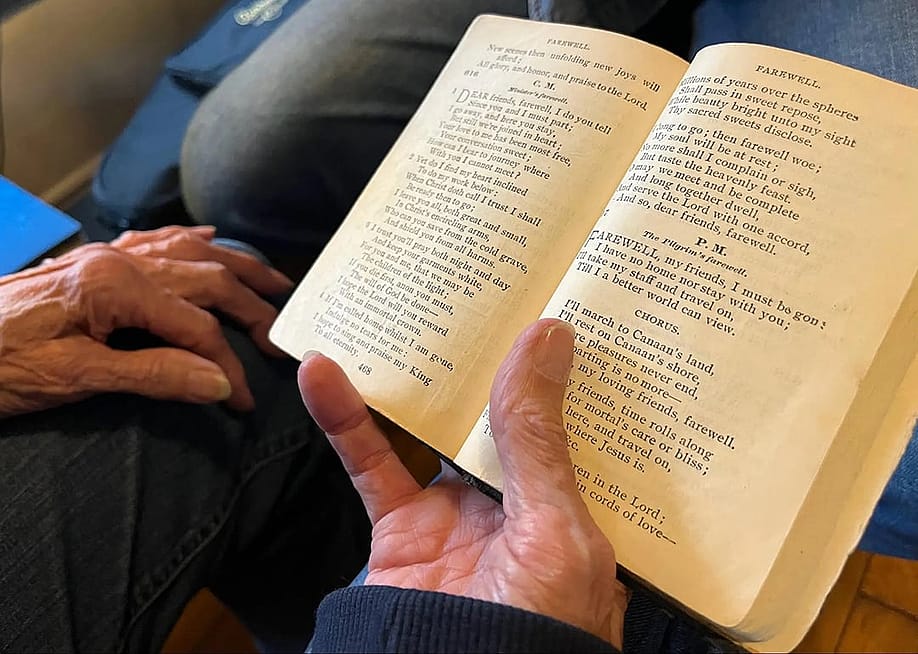 FAREWELL.
New scenes then unfolding new joys will
afford;
All glory, and honor, and praise to the Lord.
616 C. M.
Minister's farewell.
1 DEAR friends, farewell, I do you tell
Since you and I must part;
I go away, and here you stay,
But still we're joined in heart.
Your love to me has been most free,
Your conversation sweet;
How can I bear to journey where
With you I cannot meet?
2 Yet do I find my heart inclined
To do my work below:
When Christ doth call I trust I shall
Be ready then to go:
I leave you all, both great and small,
In Christ's encircling arms,
Who can you save from the cold grave,
And shield you from all harms.
I trust you'll pray both night and day
And keep your garments white,
For you and me, that we may be
The children of the light.
If you die first, anon you must,
The will of God be done—
I hope the Lord will you reward
With an immortal crown.
4 If I'm called home whilst I am gone,
Indulge no tears for me;
I hope to sing and praise my King
To all eternity.
468
FAREWELL.
of years over the spheres
Shall pass in sweet repose,
While beauty bright unto my sight
Thy sacred sweets disclose.
long to go; then farewell woe;
My soul will be at rest;
No more shall I complain or sigh,
But taste the heavenly feast.
may we meet and be complete
And long together dwell,
And serve the Lord with one accord,
And so, dear friends, farewell.
P. M.
The Pilgrim's farewell.
FAREWELL, my friends, I must be gone;
I have no home nor stay with you;
I'll take my staff and travel on,
Till I a better world can view.
CHORUS.
I'll march to Canaan's land,
I'll rest on Canaan's shore,
pleasures never end,
parting is no more—
my loving friends, farewell.
friends, time rolls along
for mortal's care or bliss;
here, and travel on,
where Jesus is.
&c.
in the Lord;
in cords of love—